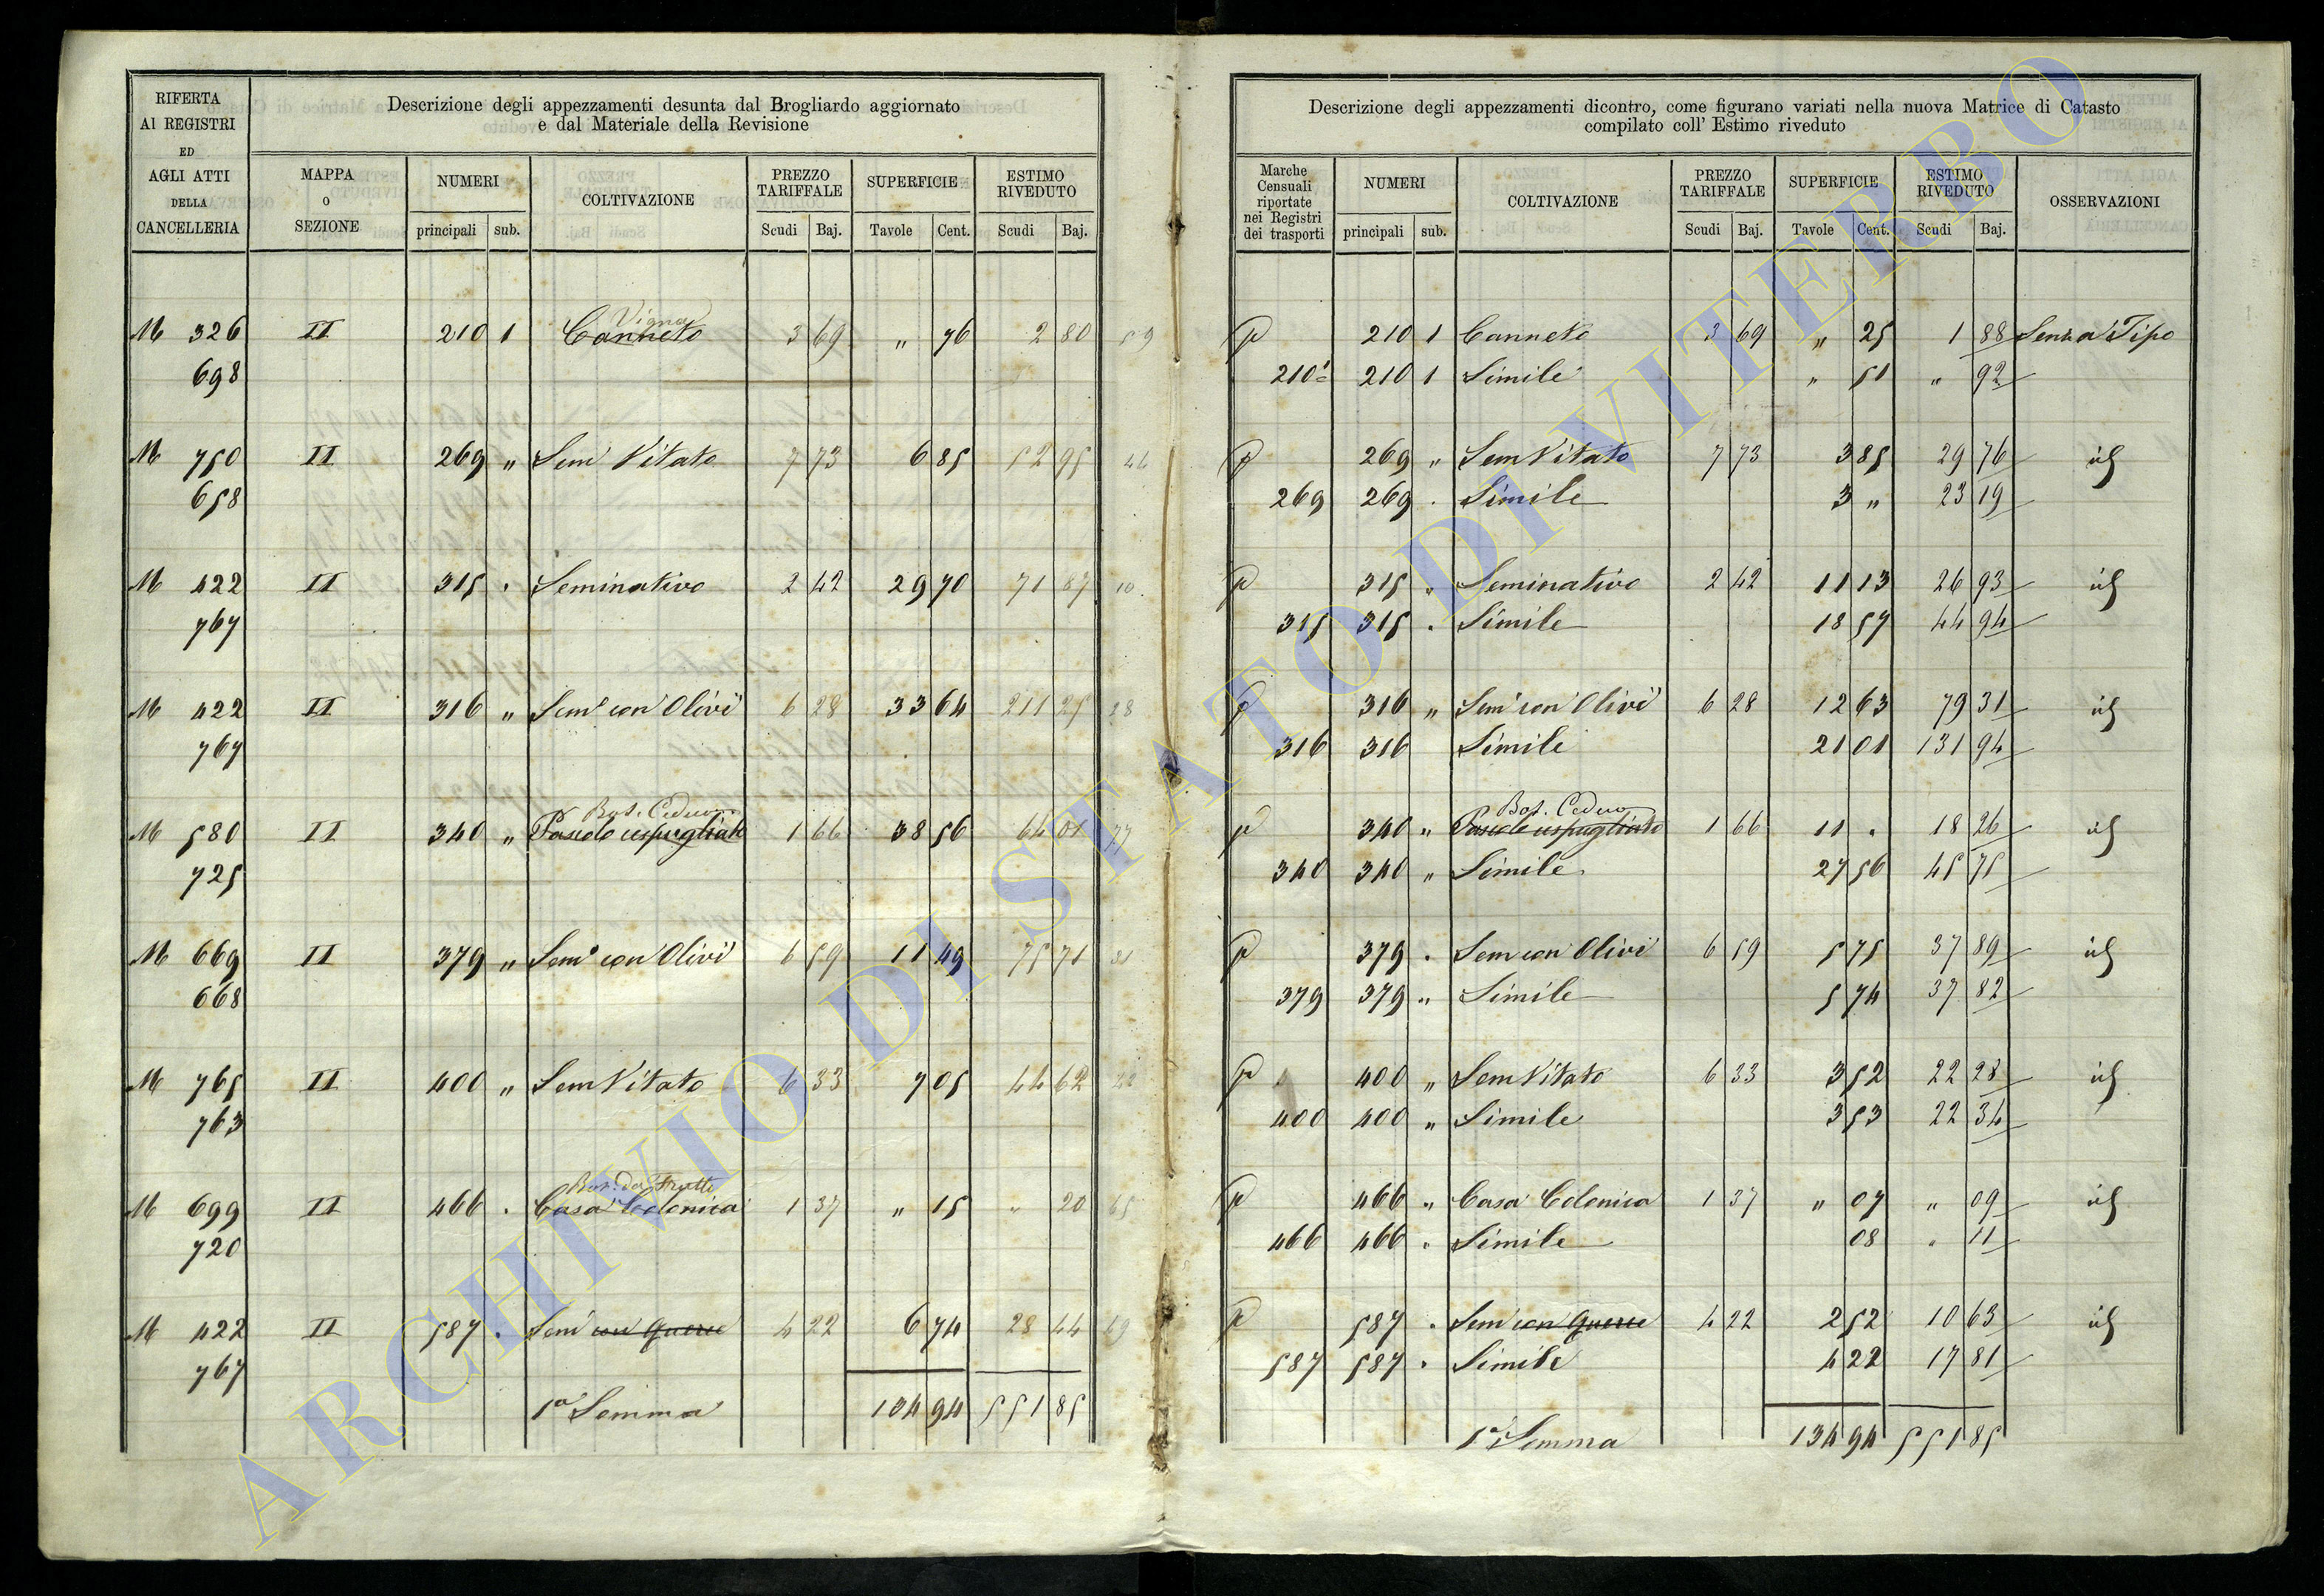 RIFERTA
AI REGISTRI
ED
AGLI ATTI
DELLA
CANCELLERIA
Descrizione degli appezzamenti desunta dal Brogliardo aggiornato
e dal Materiale della Revisione
MAPPA
o
SEZIONE
NUMERI
principali sub.
COLTIVAZIONE
PREZZO
TARIFFALE
Scudi Baj.
SUPERFICIE
Tavole Cent.
ESTIMO
RIVEDUTO
Scudi Baj.
Vigna
M 326 II 210 1 Canneto 3 69 " 76 2 80 59
698
M 750 II 269 " Sem Vitato 7 73 6 85 52 95
658
M 422 II 315 . Seminativo 2 42 29 70 71 87 10
767
M 422 II 316 " Sem con Olivi 6 28 33 64 211 25 28
767
Bos. Ceduo
M 580 II 340 " Pascolo cespugliato 1 66 38 56 64 01 77
725
M 669 II 379 " Sem con Olivi 6 59 11 49 75 71
668
M 765 II 400 " Sem Vitato 6 33 7 05 44 62 22
763
Bos. da Frutti
M 699 II 466 . Casa Colonica 1 37 " 15 " 20
720
M 422 II 587 . Sem con Querce 4 22 6 74 28 44
767
1a Somma 134 94 551 85
Descrizione degli appezzamenti dicontro, come figurano variati nella nuova Matrice di Catasto
compilato coll' Estimo riveduto
Marche
Censuali
riportate
nei Registri
dei trasporti
NUMERI
principali sub.
COLTIVAZIONE
PREZZO
TARIFFALE
Scudi Baj.
SUPERFICIE
Tavole Cent.
ESTIMO
RIVEDUTO
Scudi Baj.
OSSERVAZIONI
p 210 1 Canneto 3 69 " 25 1 88 Senza Tipo
210 1 210 1 Simile " 51 " 92
p 269 " Sem Vitato 7 73 3 85 29 76 id
269 269 . Simile 3 " 23 19
p 315 " Seminativo 2 42 11 13 26 93 id
315 315 . Simile 18 57 44 94
p 316 " Sem con Olivi 6 28 12 63 79 31 id
316 316 Simile 21 01 131 94
Bos. Ceduo
p 340 " Pascolo cespugliato 1 66 11 . 18 26 id
340 340 " Simile 27 56 45 75
p 379 . Sem con Olivi 6 59 5 75 37 89 id
379 379 " Simile 5 74 37 82
p 400 " Sem Vitato 6 33 3 52 22 28 id
400 400 " Simile 3 53 22 34
p 466 " Casa Colonica 1 37 " 07 " 09 id
466 466 . Simile 08 " 11
p 587 . Sem con Querce 4 22 2 52 10 63 id
587 587 . Simile 4 22 17 81
1a Somma 134 94 551 85
ARCHIVIO DI STATO DI VITERBO